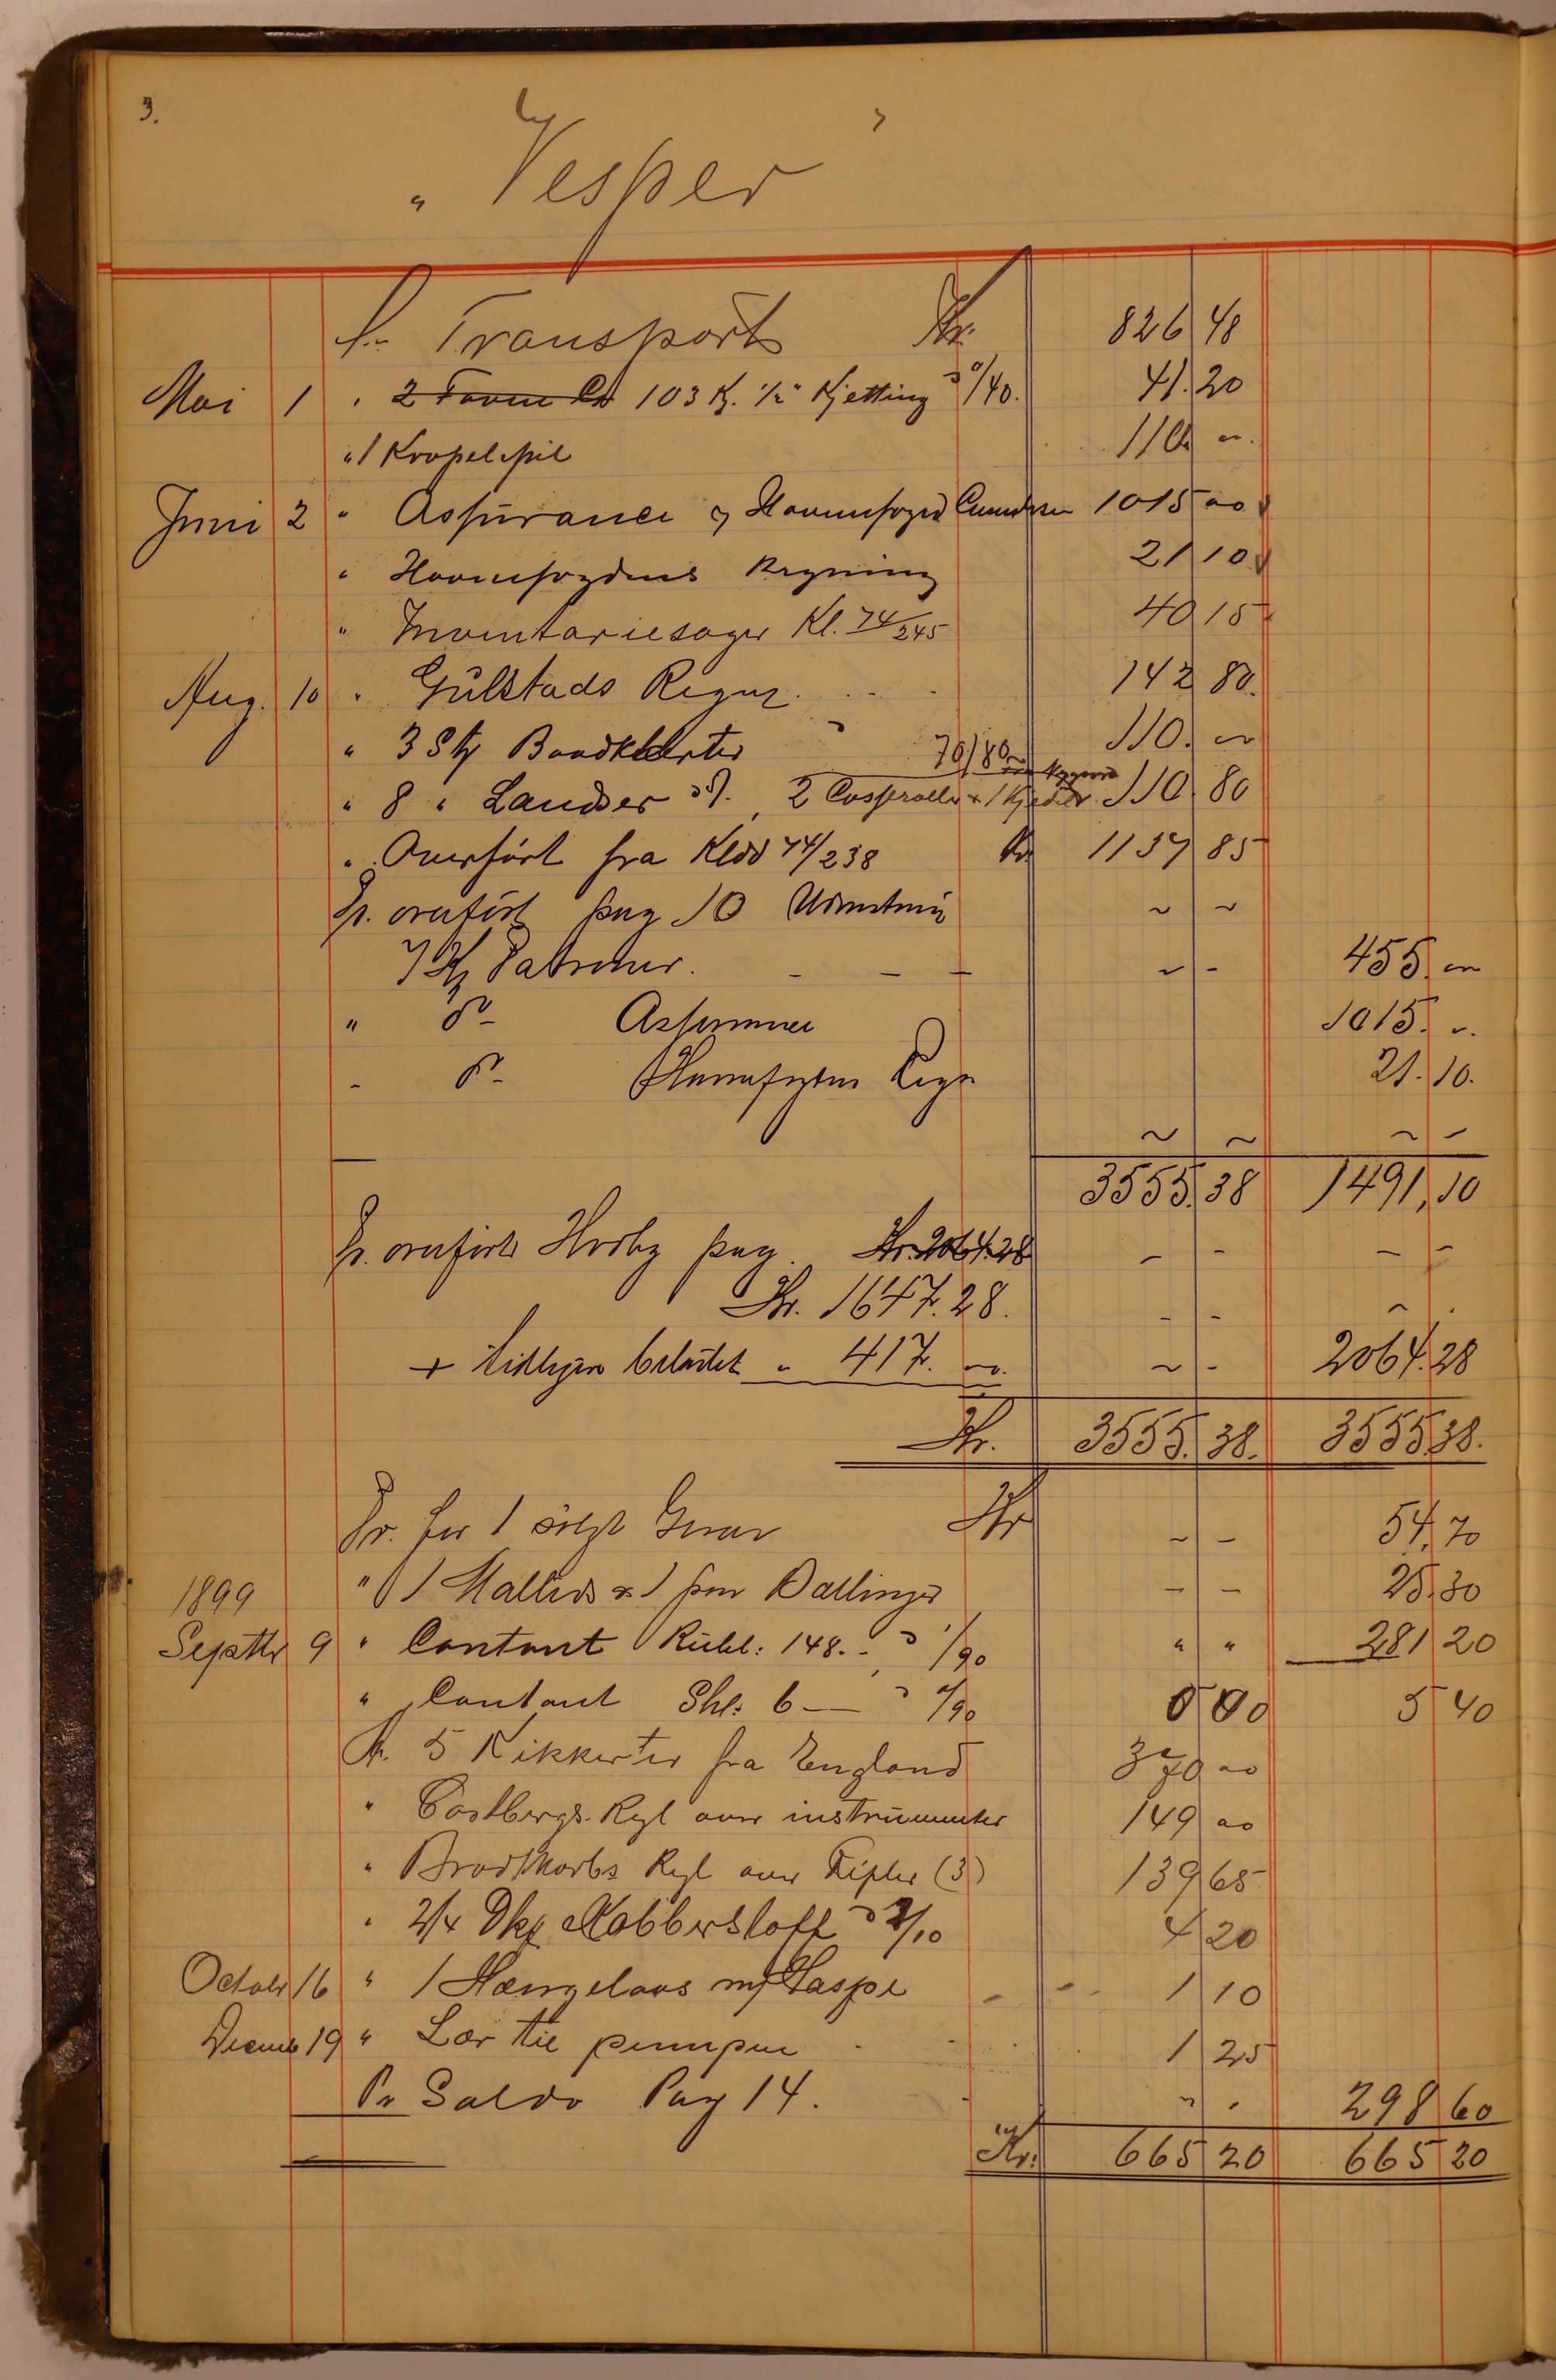 3.
„ Vesper "
An Transport Kr. 826 48
Mai 1 " 2 Favne 103 K. ½" Kjetting a /40. 41.20
" 1 Kropelspil 110. "
Juni 2 " Assurance og Havnefoged 1015 00
" Havnefogdens Regning 21 10
" Inventariesager Kl. 74/245 40 15
Aug. 10 " Gulstads Regng. 142 80.
" 3 Stk Baadk 70/80 110. "
" 8 " Landser a 2 Casseroller & 1 Kjedel 110 80
" Overført fra Kladd 74/238 Kr 1137 85
Pr. overført pag 10
7 Patroner. 455. "
" do Assurance 1015. "
" do Havnefogdens Regn 21.10.
3555.38 1491,10
Pr. overført pag. Kr. 2064.28
Kr. 1647.28.
+ tidligere belastet " 417. " 2064.28
Kr. 3555.38. 3555.38.
Pr. for 1 solgt Kr 54,70
" 1 & 1 Ballinger 25.30
1899
Septbr 9 " Contant Rubl: 148. - a 1/90 " " 281 20
" Contant Shl: 6 — a /90 0 00 5 40
An. 5 Kikkerter fra England 370 00
" Castbergs Rgl over instrumenter 149 00
" Rgl over Rifler (3) 139 65
" 2/4 Dkg Kobberstoft a 2/10 4 20
Octobr 16 " 1 Hængelaas m/ Haspe 1 10
Decemb 19 " Lær til pumpen 1 25
Pr Saldo Pag 14. 298 60
Kr. 665 20 665 20